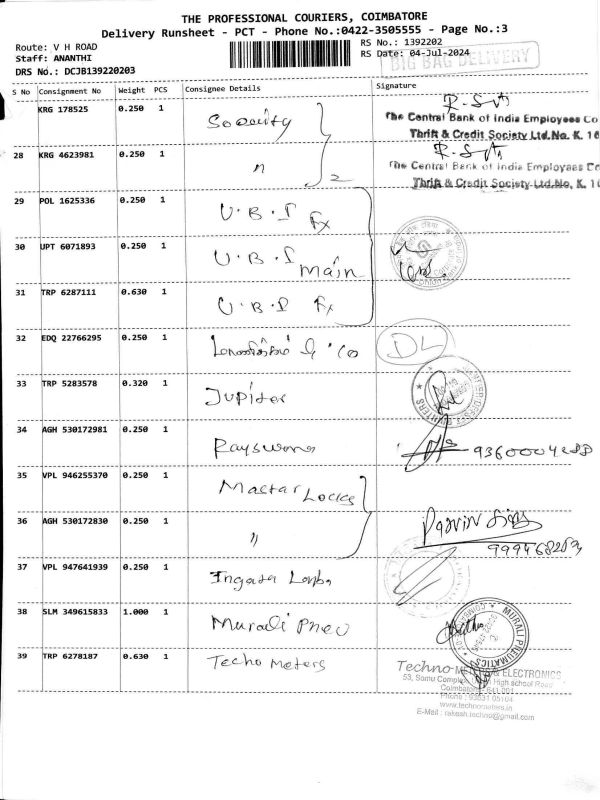 THE PROFESSIONAL COURIERS, COIMBATORE
Delivery Runsheet - PCT - Phone No.:0422-3505555 - Page No.:3
Route: V H ROAD RS No.: 1392202
Staff: ANANTHI RS Date: 04-Jul-2024
BIG BAG DELIVERY
DRS No.: DCJB139220203
S No Consignment No Weight PCS Consignee Details Signature
KRG 178525 0.250 1 Society
The Central Bank of India Employees Co
Thrift & Credit Society Ltd.No. K. 16
28 KRG 4623981 0.250 1 " 2
The Central Bank of India Employees Co
Thrift & Credit Society Ltd.No. K. 16
29 POL 1625336 0.250 1 U.B.I Fx
30 UPT 6071893 0.250 1 U.B.I main
31 TRP 6287111 0.630 1 U.B.I Fx
32 EDQ 22766295 0.250 1 DL
33 TRP 5283578 0.320 1 Jupiter
34 AGH 530172981 0.250 1
35 VPL 946255370 0.250 1 Mastar Locks
36 AGH 530172830 0.250 1 "
37 VPL 947641939 0.250 1
38 SLM 349615833 1.000 1 Murali Pneu
MURALI PNEUMATICS
39 TRP 6278187 0.630 1 Techo Meters
Techno METERS & ELECTRONICS
53, Somu Complex, High school Road
Coimbatore - 641 001
Phone : 93631 05104
www.technometers.in
E-Mail : rakesh.techno@gmail.com